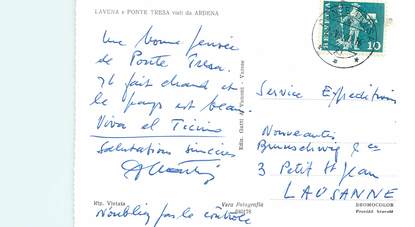 LAVENA e PONTE TRESA visti da ARDENA
Une bonne pensée
de Ponte Tresa.
Il fait chaud et
le pays est beau.
Viva el Ticino
Salutations sincères
Rip. Vietata
Vera Fotografia
N'oubliez pas le contrôle
Ediz. Garti di Vincenti - Varese
HELVETIA
10
Service Expédition
Nouveautés
Brunschwig & Cie
3 Petit St Jean
LAUSANNE
DROMOCOLOR